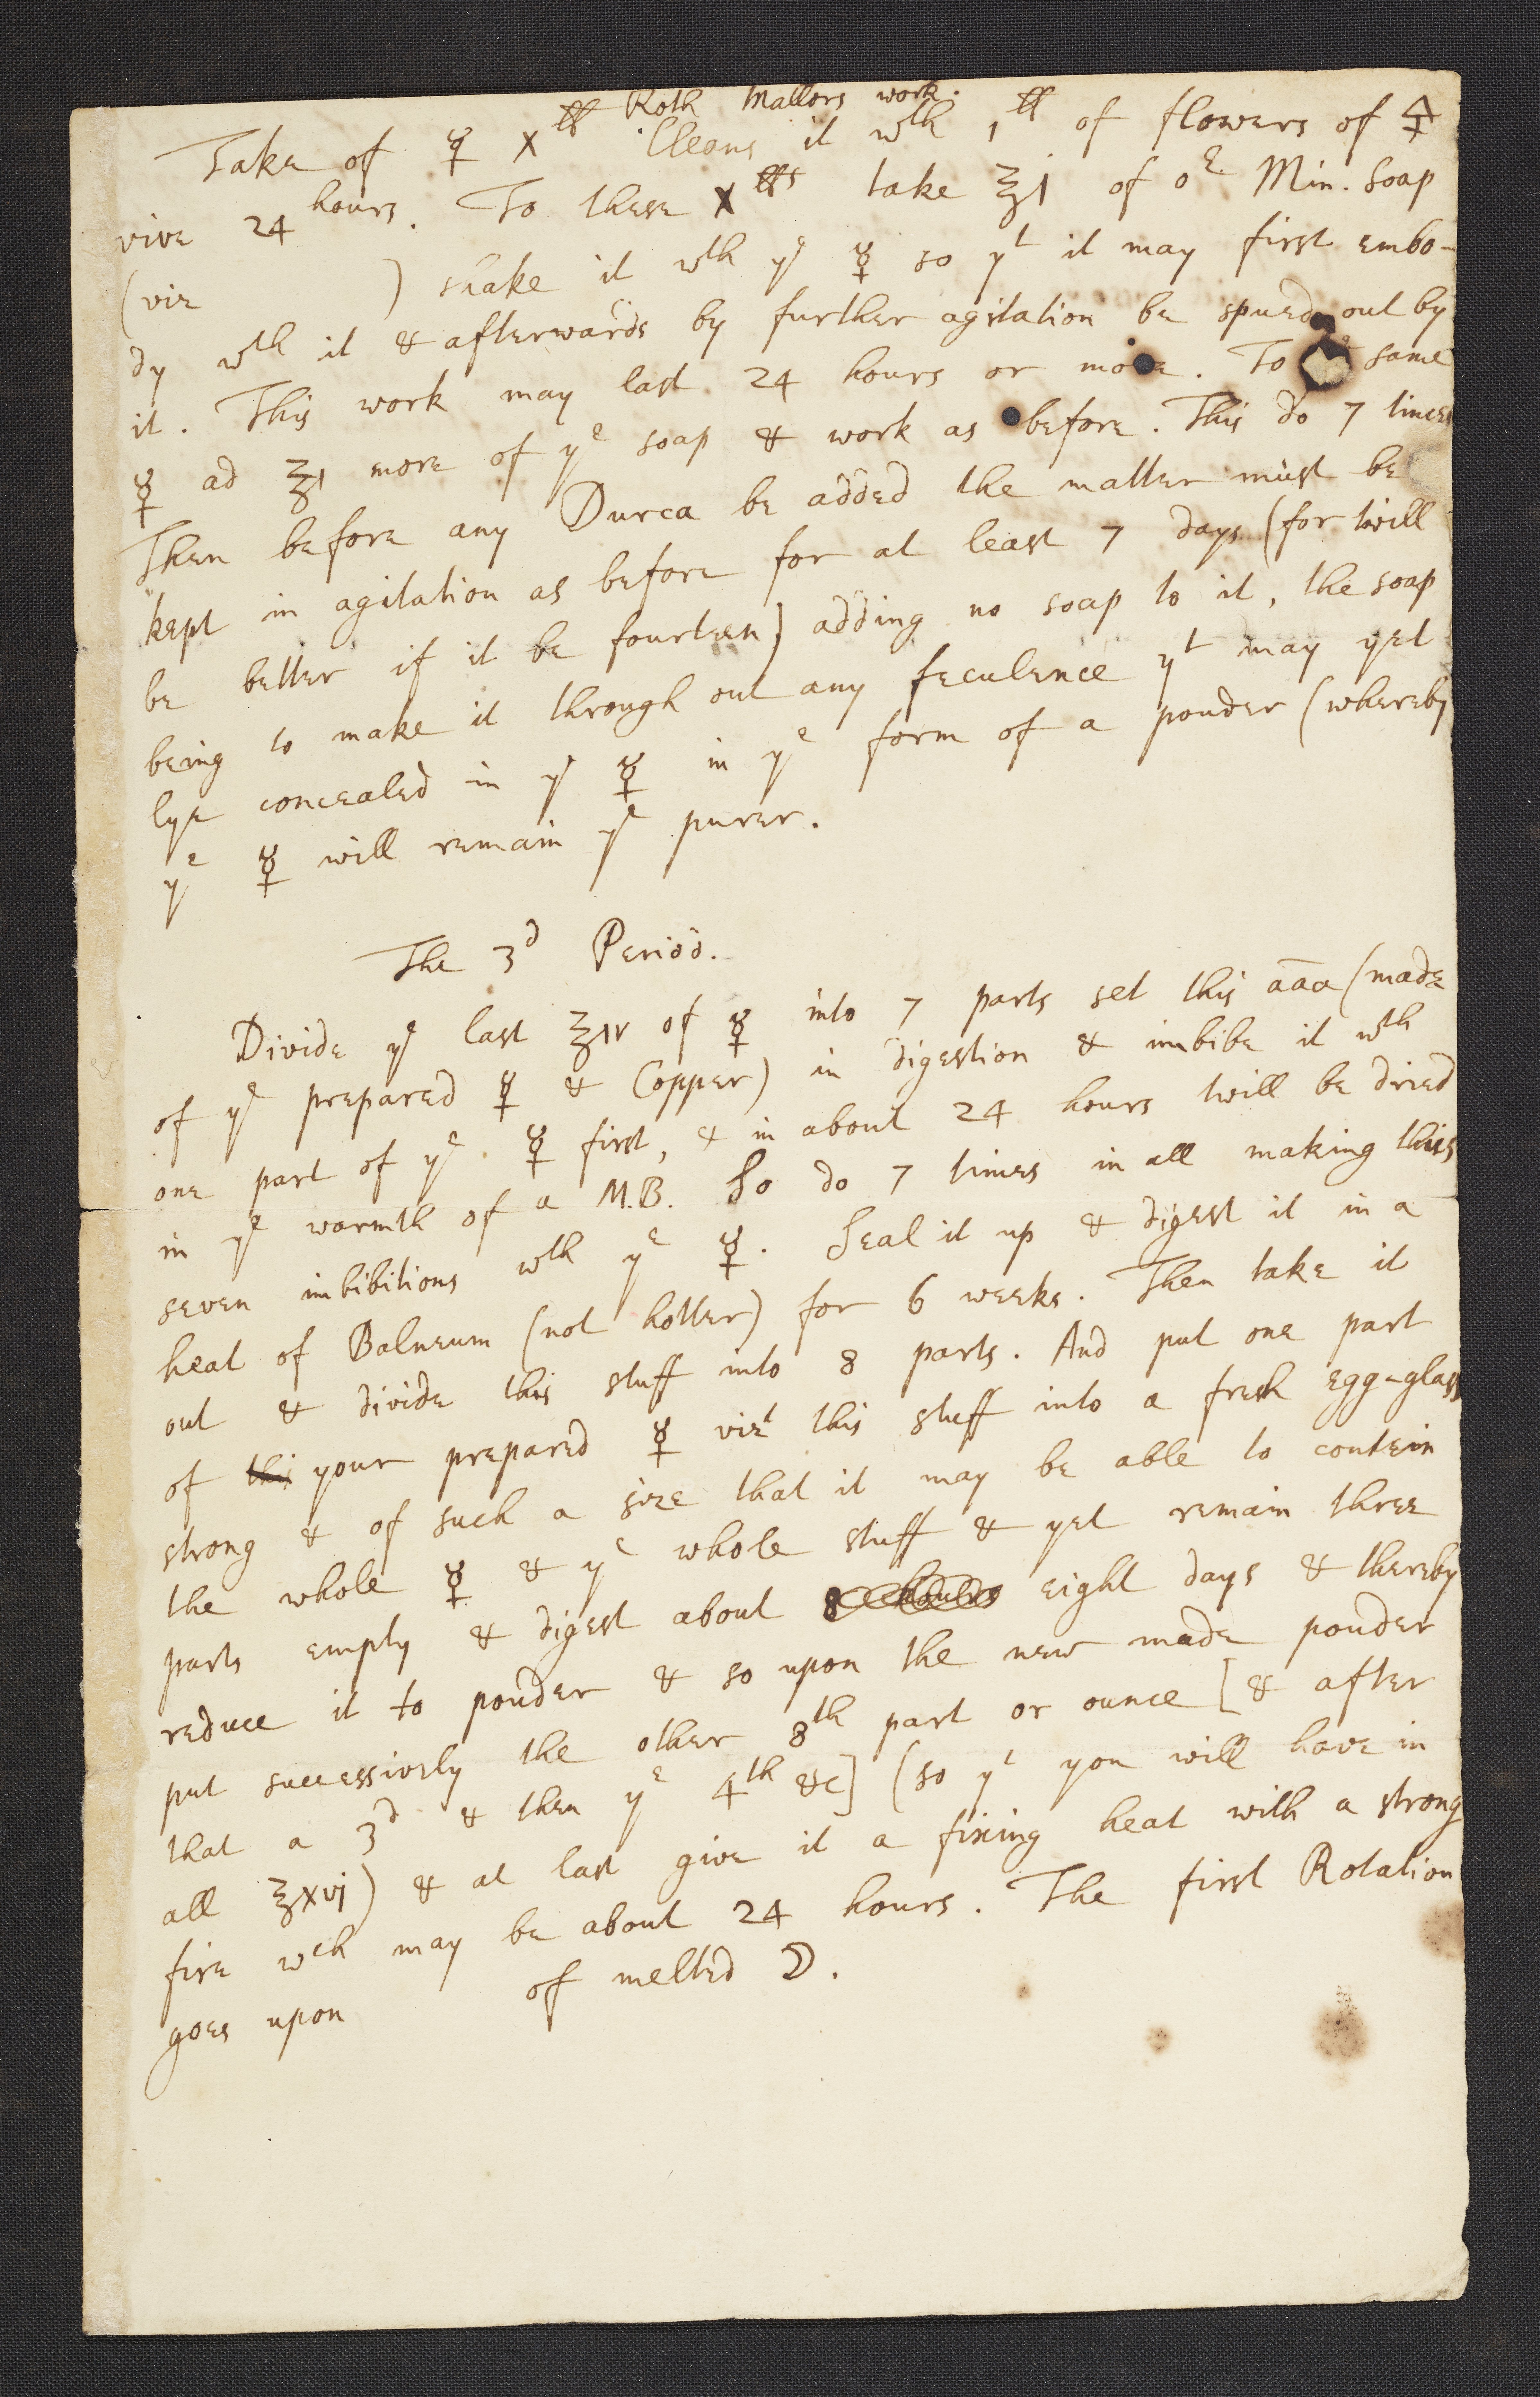 Roth Mallors work.
Take of ☿ X ℔ Cleans it wth 1 ℔ of flowers of 🜍
vive 24 hours. To these X ℔s take ℥1 of oe Min. soap
(viz ) shake it wth ye ☿ so yt it may first embo-
dy wth it & afterwards by further agitation be spued out by
it. This work may last 24 hours or more. To same
☿ ad ℥1 more of ye soap & work as before. This do 7 times
Then before any Durca be added the matter must be
kept in agitation as before for at least 7 days (for twill
be better if it be fourteen) adding no soap to it, the soap
being to make it through out any feculence yt may yet
lye concealed in ye ☿ in ye form of a pouder (whereby
ye ☿ will remain ye purer.
The 3d Period.
Divide ye last ℥iv of ☿ into 7 parts set this āāa (made
of ye prepared ☿ & Copper) in digestion & imbibe it wth
one part of ye ☿ first, & in about 24 hours twill be dried
in ye warmth of a M.B. So do 7 times in all making this
seven imbibitions wth ye ☿. Seal it up & digest it in a
heat of Balneum (not hotter) for 6 weeks. Then take it
out & divide this stuff into 8 parts. And put one part
of thi your prepared ☿ vizt this stuff into a fresh egg-glass
strong & of such a size that it may be able to contein
the whole ☿ & ye whole stuff & yet remain three
parts empty & digest about 8 hours eight days & thereby
reduce it to pouder & so upon the new made pouder
put successively the other 8th part or ounce [& after
that a 3d & then ye 4th &c] (so yt you will have in
all ℥xvj) & at last give it a fixing heat with a strong
fire wch may be about 24 hours. The first Rotation
goes upon of melted ☽.